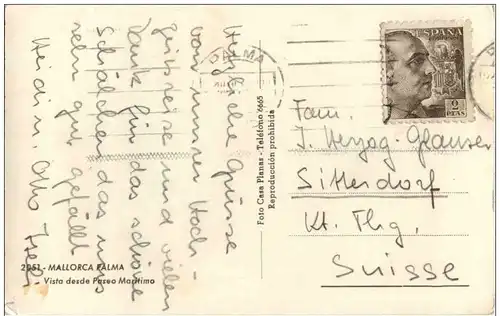 Herzliche Grüsse
von unserer Hoch-
zeitsreise und vielen
Dank für das schöne
Schälchen das uns
sehr gut gefällt
Heidi u. Otto
2051 - MALLORCA PALMA
Vista desde Paseo Marítimo
Foto Casa Planas - Teléfono 6665
Reproducción prohibida
PALMA
ESPAÑA
2
PTAS
Fam.
J. Herzog-Glauser
Sitterdorf
Kt. Thg.
Suisse